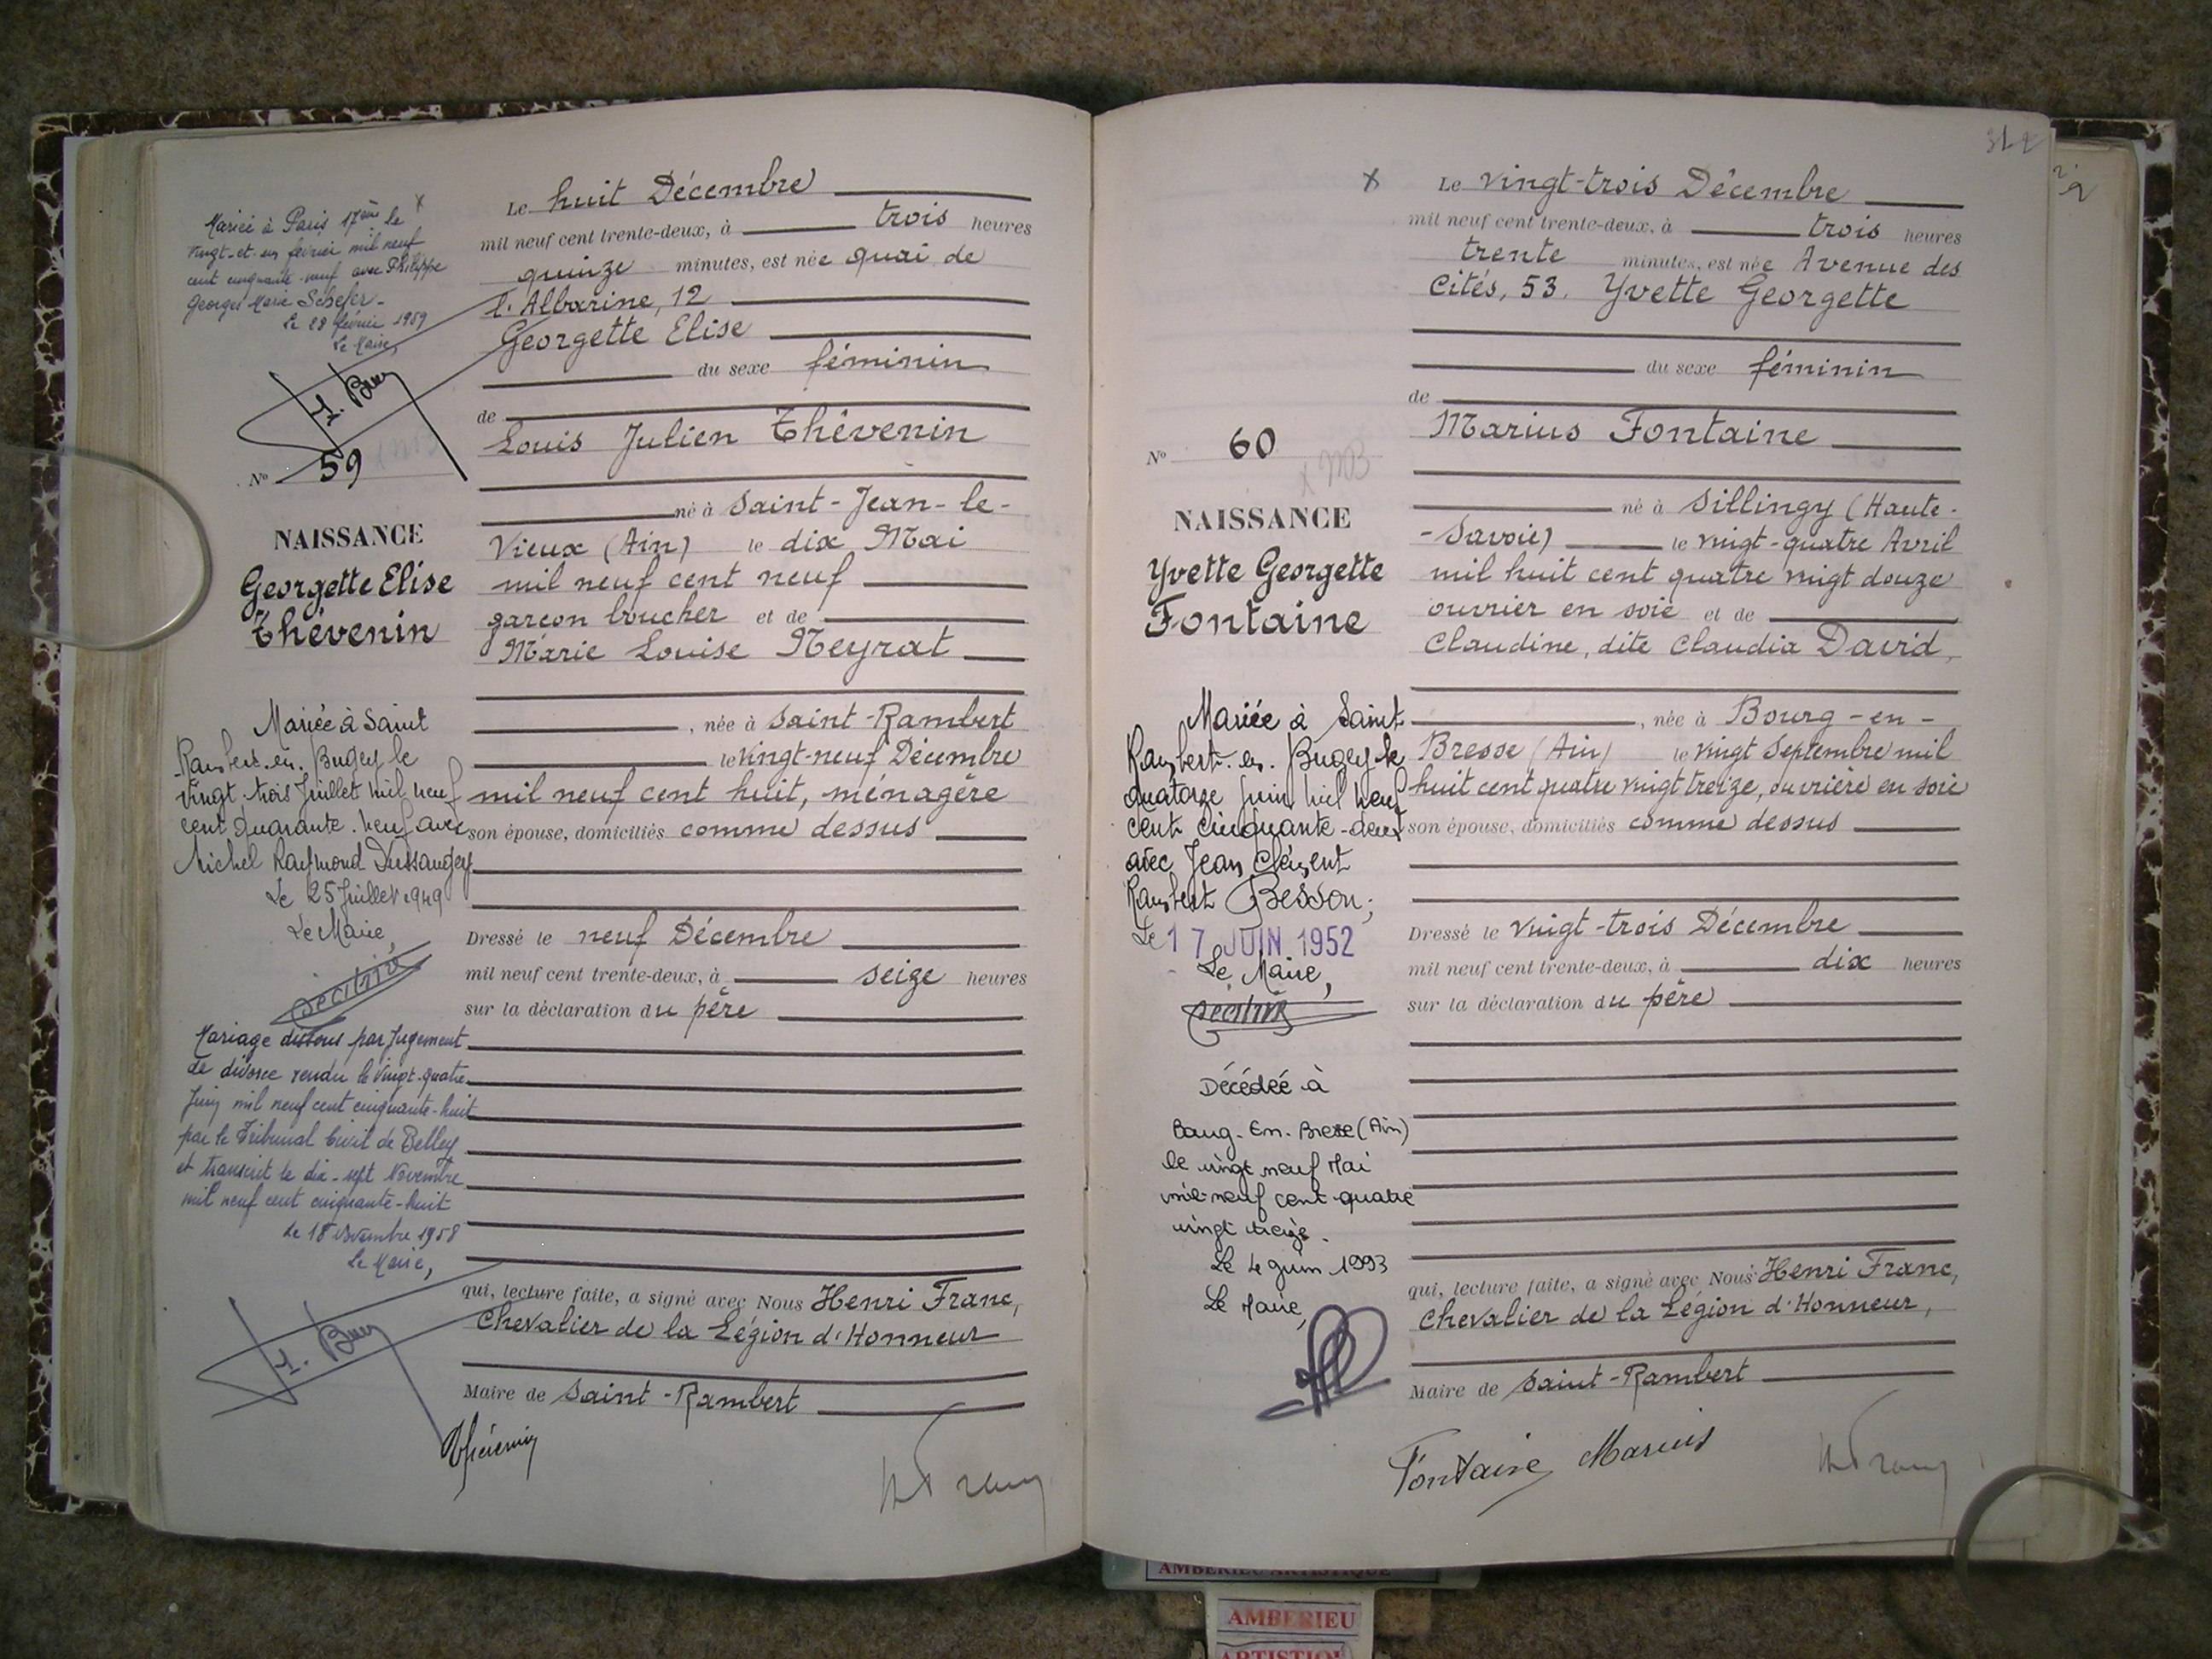 Mariée à Paris 17ème le
vingt-et-un février mil neuf
cent cinquante-neuf avec Philippe
Georges Marie Schefer-
Le 28 février 1959
Le Maire,
Nº 59
NAISSANCE
Georgette Elise
Thévenin
Mariée à Saint
Rambert-en-Bugey le
vingt-trois Juillet mil neuf
cent quarante-neuf avec
Michel Raymond Dussaugey
Le 25 Juillet 1949
Le Maire,
Mariage dissous par Jugement
de divorce rendu le vingt-quatre
Juin mil neuf cent cinquante-huit
par le Tribunal Civil de Belley
et transcrit le dix-sept Novembre
mil neuf cent cinquante-huit
Le 18 Novembre 1958
Le Maire,
Le huit Décembre
mil neuf cent trente-deux, à trois heures
quinze minutes, est née quai de
l'Albarine, 12
Georgette Elise
du sexe féminin
de
Louis Julien Thévenin
né à Saint-Jean-le-
Vieux (Ain) le dix Mai
mil neuf cent neuf
garçon boucher et de
Marie Louise Neyrat
, née à Saint-Rambert
le vingt-neuf Décembre
mil neuf cent huit, ménagère
son épouse, domiciliés comme dessus
Dressé le neuf Décembre
mil neuf cent trente-deux, à seize heures
sur la déclaration du père
qui, lecture faite, a signé avec Nous Henri Franc,
Chevalier de la Légion d'Honneur
Maire de Saint-Rambert
Thévenin
x
Nº 60
NAISSANCE
Yvette Georgette
Fontaine
Mariée à Saint-
Rambert-en-Bugey le
quatorze Juin mil neuf
cent cinquante-deux
avec Jean Clément
Rambert Besson;
Le 17 JUIN 1952
Le Maire,
Décédée à
Bourg-En-Bresse (Ain)
le vingt neuf Mai
mil-neuf cent quatre
vingt treize.
Le 4 juin 1993
Le Maire,
Le vingt-trois Décembre
mil neuf cent trente-deux, à trois heures
trente minutes, est née Avenue des
Cités, 53. Yvette Georgette
du sexe féminin
de
Marius Fontaine
né à Sillingy (Haute-
-Savoie) le vingt-quatre Avril
mil huit cent quatre vingt douze
ouvrier en soie et de
Claudine, dite Claudia David,
, née à Bourg-en-
Bresse (Ain) le vingt Septembre mil
huit cent quatre vingt treize, ouvrière en soie
son épouse, domiciliés comme dessus
Dressé le vingt-trois Décembre
mil neuf cent trente-deux, à dix heures
sur la déclaration du père
qui, lecture faite, a signé avec Nous Henri Franc,
Chevalier de la Légion d'Honneur,
Maire de Saint-Rambert
Fontaine Marius
AMBERIEU ARTISTIQUE
AMBERIEU